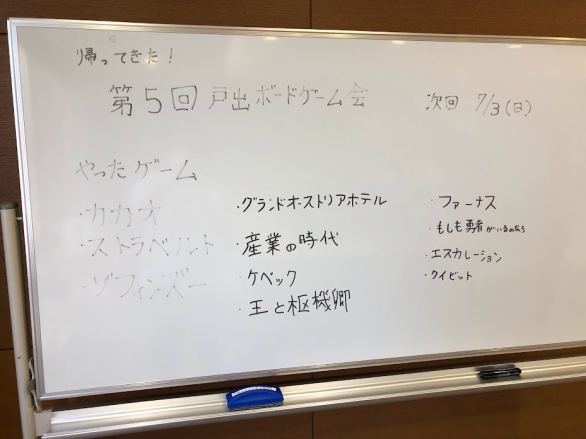 帰ってきた!
第5回 戸出ボードゲーム会
次回 7/3(日)
やったゲーム
・カカオ
・ストラベルト
・ゾフィンズー
・グランドオーストリアホテル
・産業の時代
・ケベック
・王と枢機卿
・ファーナス
・もしも勇者がいるのなら
・エスカレーション
・クイビット